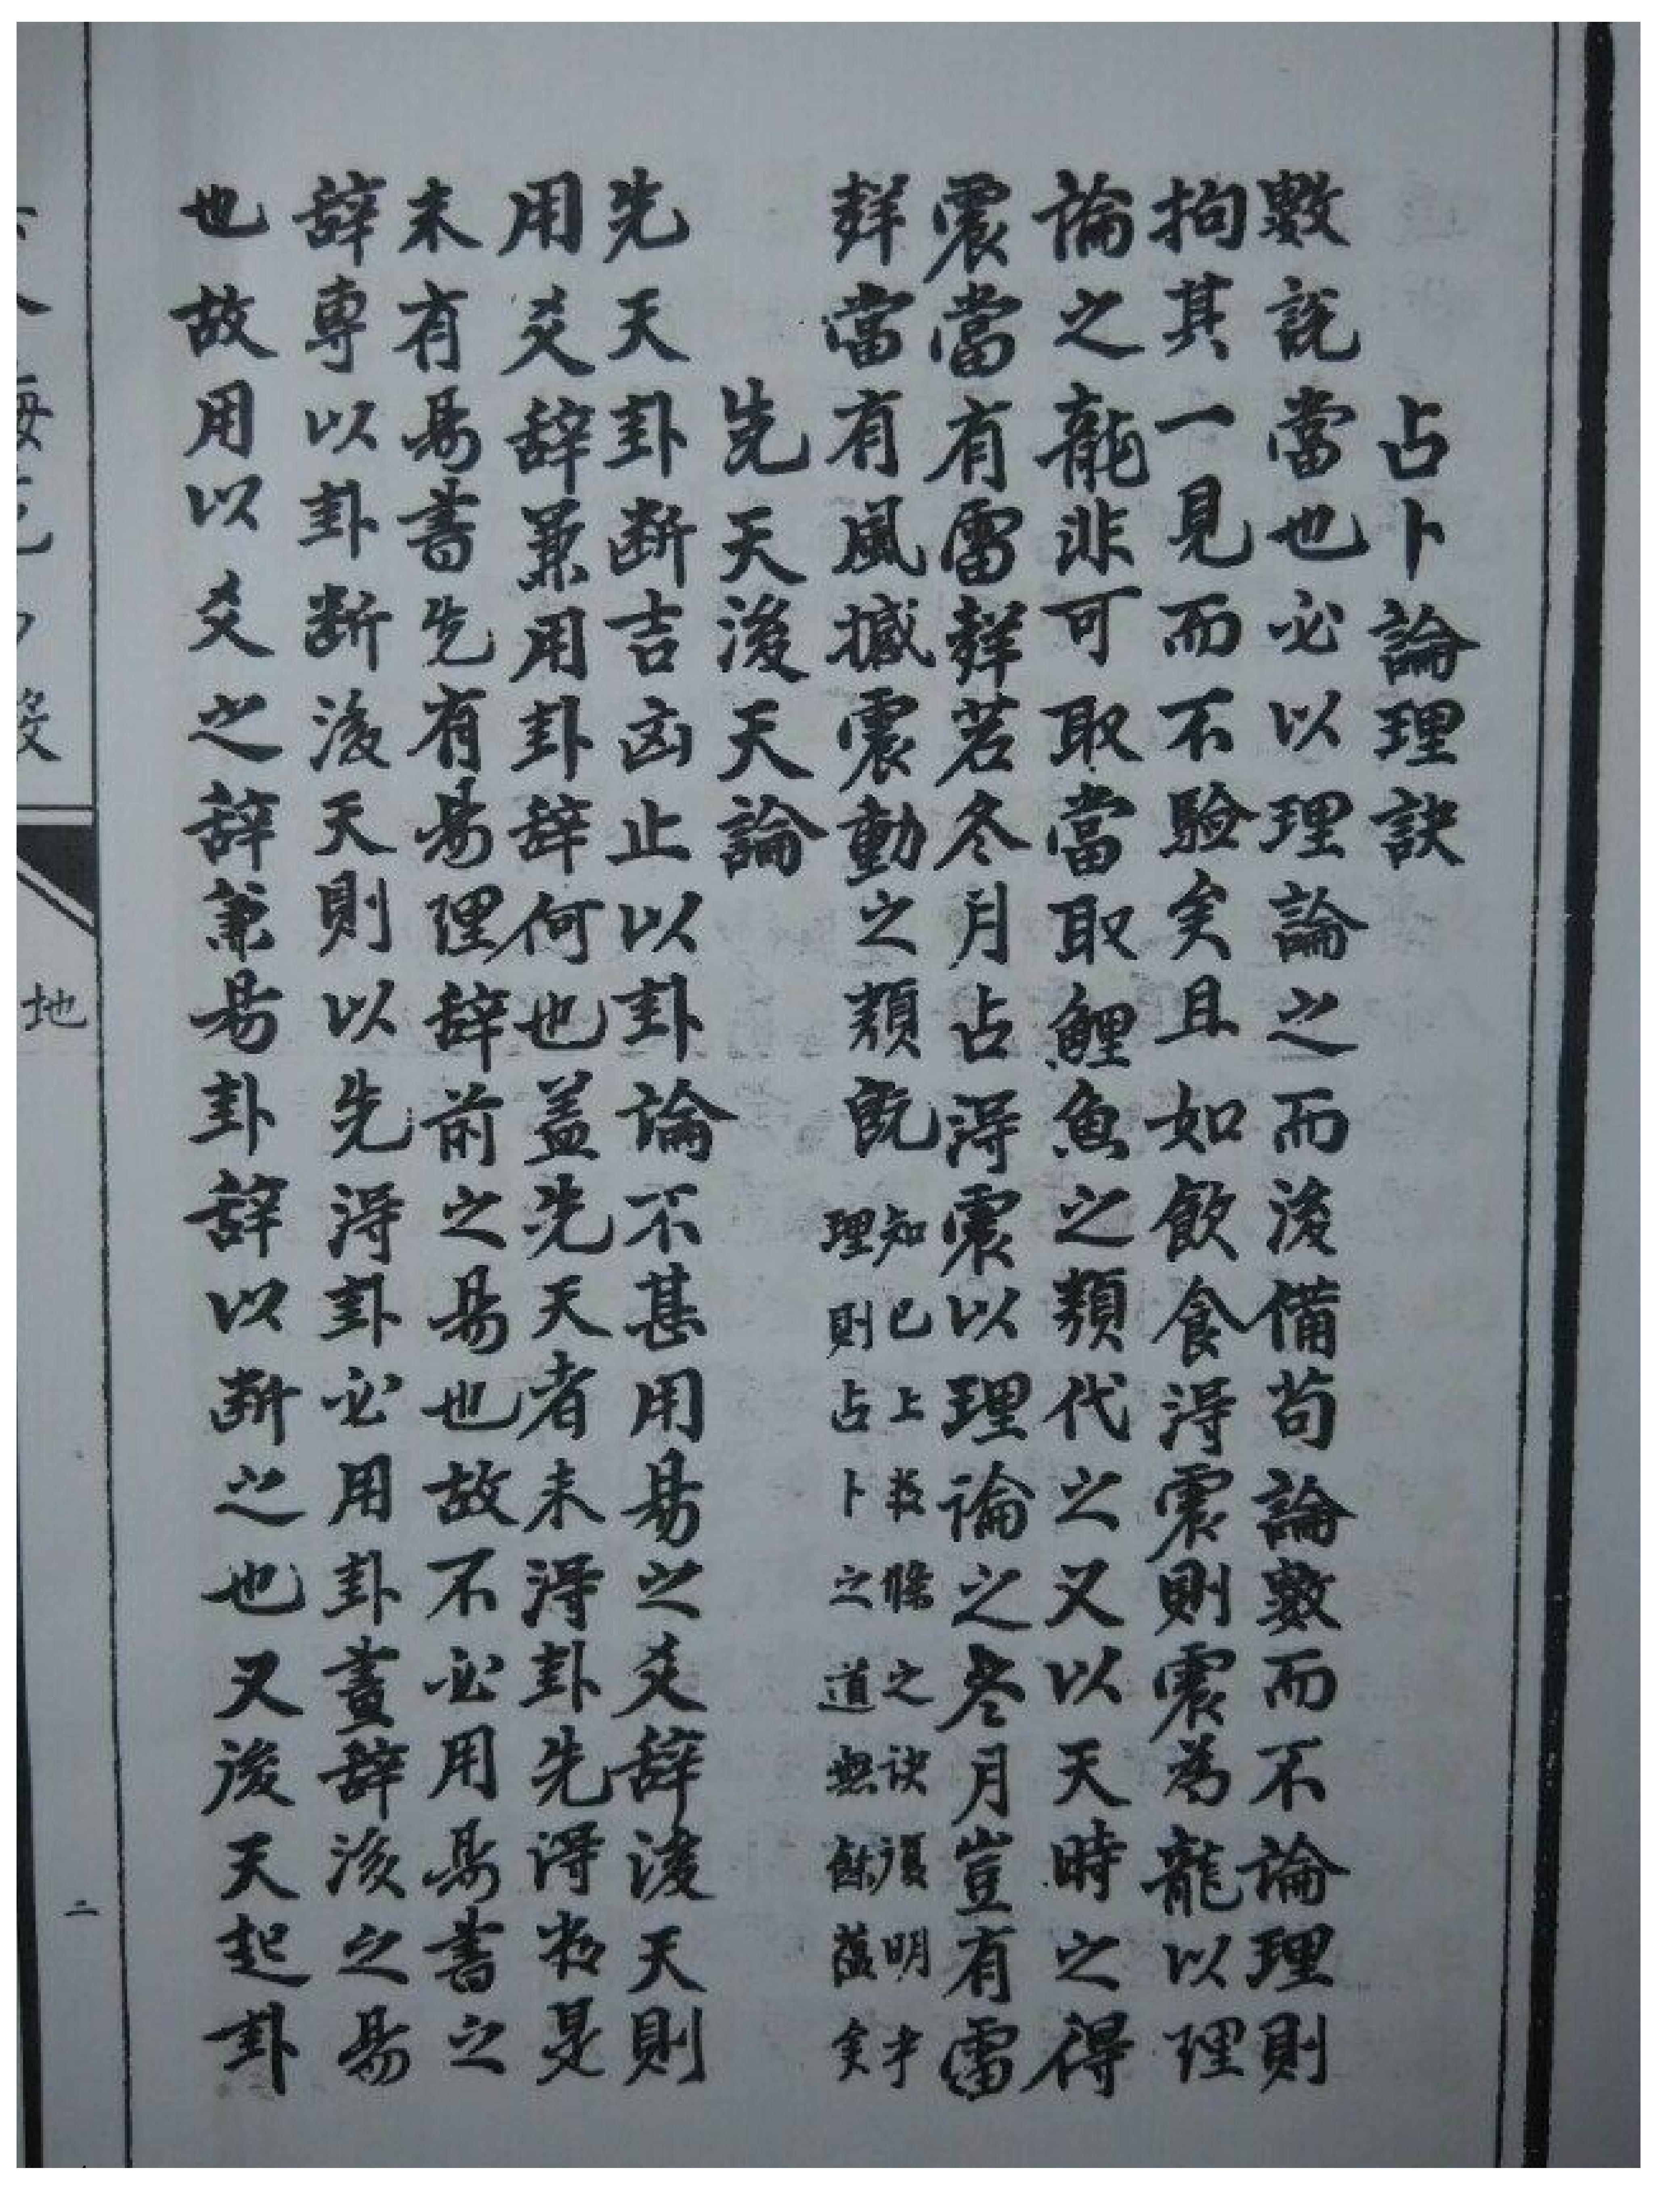 占卜論理訣
數說當也必以理論之而後備苟論數而不論理則
拘其一見而不驗矣且如飲食得震則震為龍以理
論之龍非可取當取鯉魚之類代之又以天時之得
震當有雷聲若冬月占得震以理論之冬月豈有雷
聲當有風撼震動之類既
知已上数條之訣復明乎
理則占卜之道無餘蘊矣
先天後天論
先天卦断吉凶止以卦論不甚用易之爻辞後天則
用爻辞兼用卦辞何也盖先天者未得卦先得数是
未有易書先有易理辞前之易也故不必用易書之
辞専以卦断後天則以先得卦必用卦畫辞後之易
也故用以爻之辞兼易卦辞以断之也又後天起卦
地
二